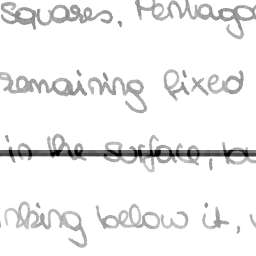 squares, Pentago
remaining fixed
in the surface, bu
inking below it,